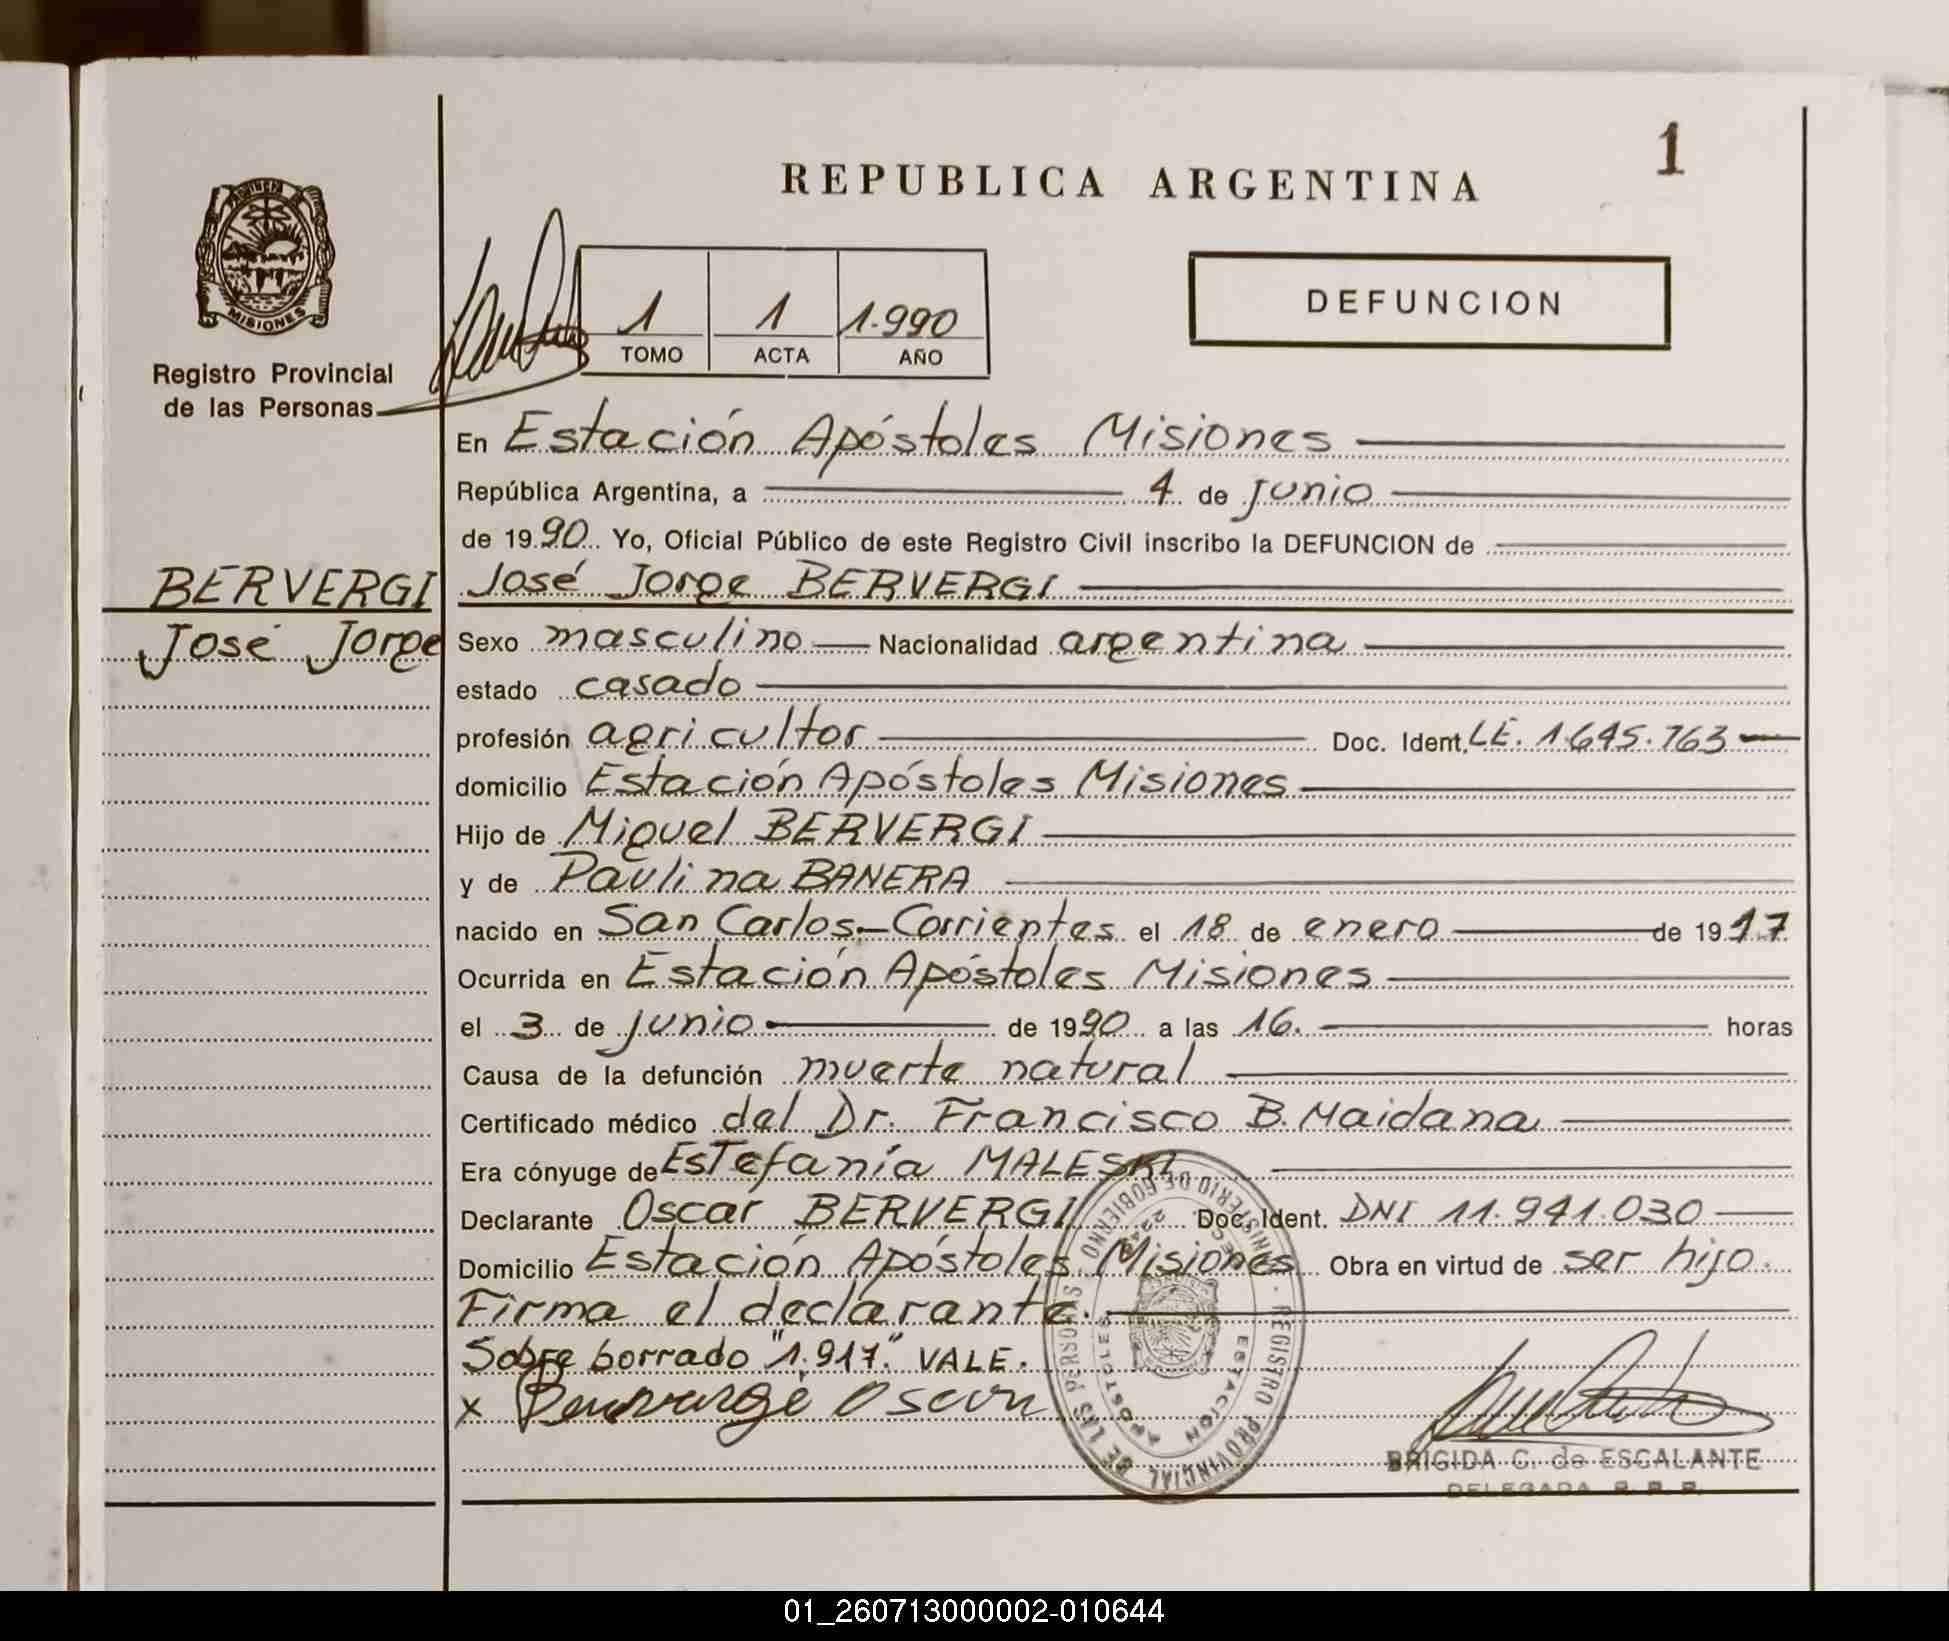 1
REPUBLICA ARGENTINA
DEFUNCION
MISIONES
Registro Provincial
de las Personas
1 1 1.990
TOMO ACTA AÑO
BERVERGI
José Jorge
En Estación Apóstoles Misiones
República Argentina, a 4 de junio
de 1990 Yo, Oficial Público de este Registro Civil inscribo la DEFUNCION de
José Jorge BERVERGI
Sexo masculino Nacionalidad argentina
estado casado
profesión agricultor Doc. Ident. LE. 1.645.763
domicilio Estación Apóstoles Misiones
Hijo de Miguel BERVERGI
y de Paulina BANERA
nacido en San Carlos-Corrientes el 18 de enero de 1917
Ocurrida en Estación Apóstoles Misiones
el 3 de junio de 1990 a las 16. horas
Causa de la defunción muerte natural
Certificado médico del Dr. Francisco B. Maidana
Era cónyuge de Estefanía MALESKI
Declarante Oscar BERVERGI Doc. Ident. DNI 11.941.030
Domicilio Estación Apóstoles Misiones Obra en virtud de ser hijo.
Firma el declarante.
Sobre borrado "1.917." VALE.
x Oscar
REGISTRO PROVINCIAL DE LAS PERSONAS
MINISTERIO DE GOBIERNO
ESTACION APOSTOLES
BRIGIDA C. de ESCALANTE
DELEGADA R. P. P.
01_260713000002-010644